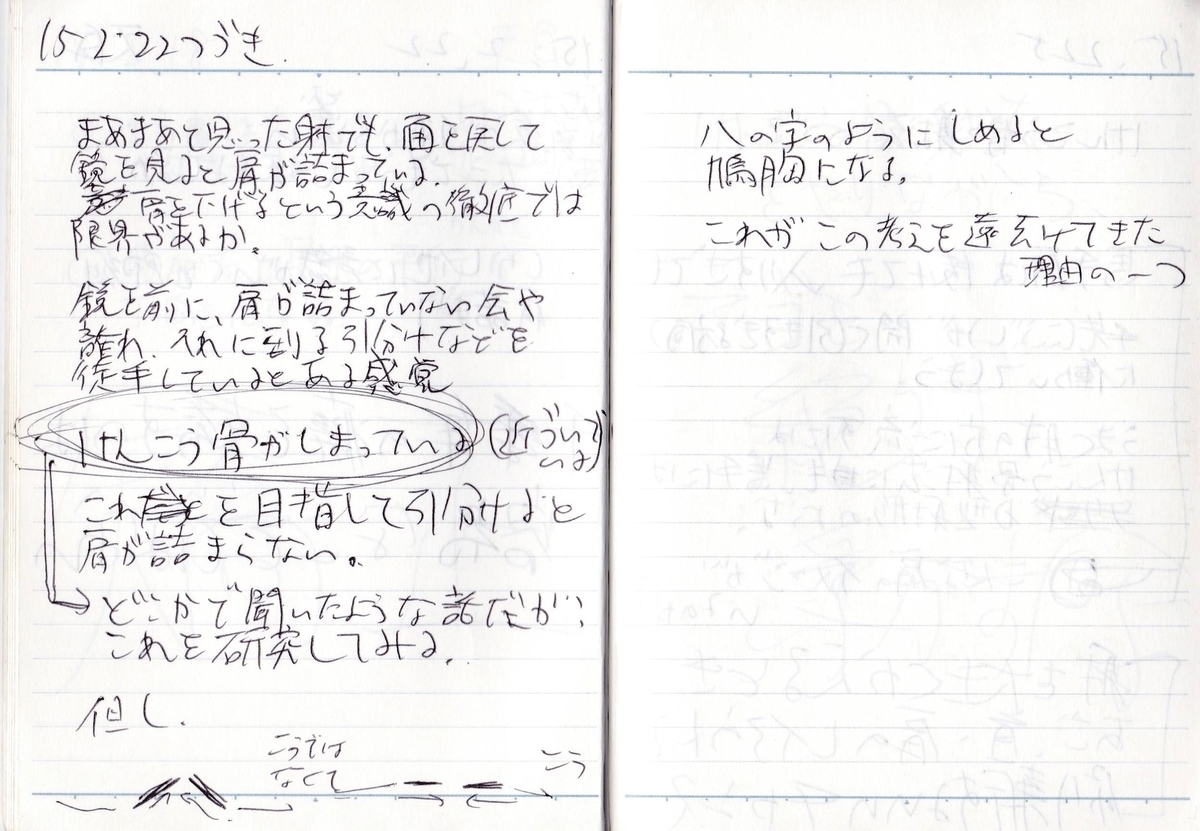 15.2.22つづき.
まあまあと思った射でも、面を戻して
鏡を見ると肩が詰まっている.
肩を下げるという意識の徹底では
限界があるか。
鏡を前に、肩が詰まっていない会や
離れ、それに到る引分けなどを
徒手しているとある感覚
けんこう骨がしまっている (近づいて
いる)
これを目指して引分けると
肩が詰まらない。
どこかで聞いたような話だが;
これを研究してみる.
但し.
こうでは
なくて
こう
八の字のようにしめると
鳩胸になる。
これがこの考えを遠ざけてきた
理由の一つ